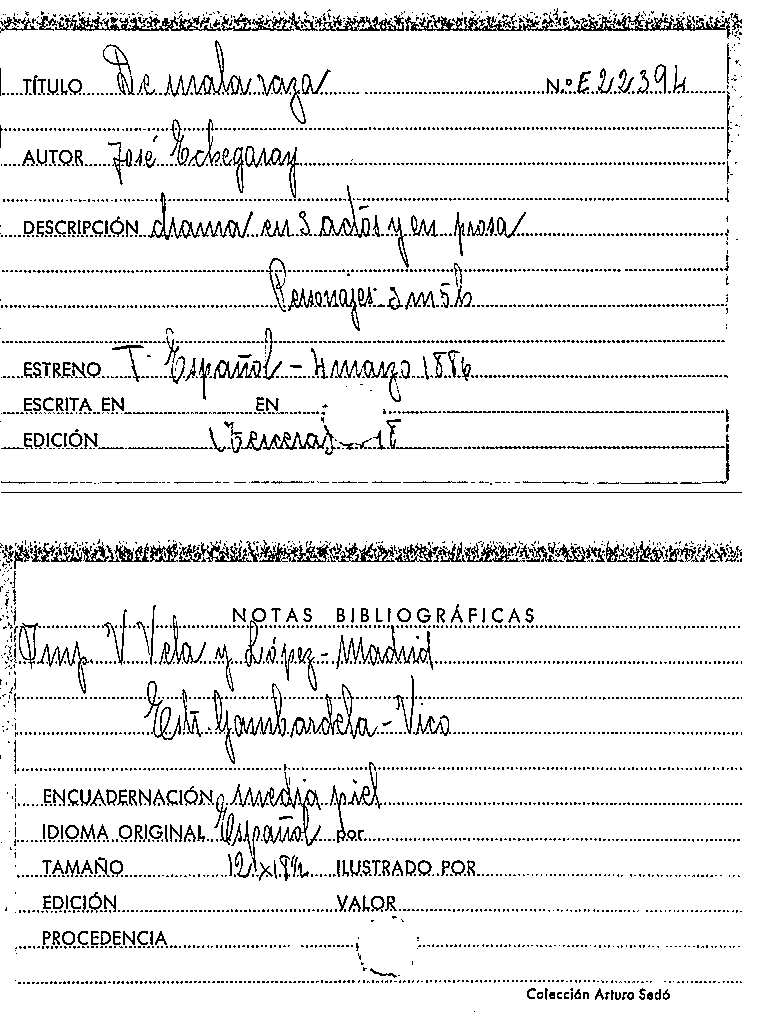 TÍTULO De mala raza N.º E 22394
AUTOR José Echegaray
DESCRIPCIÓN drama en 3 actos y en prosa
Personajes 3 m 5 h
ESTRENO T. Español - 4 marzo 1886
ESCRITA EN EN
EDICIÓN
NOTAS BIBLIOGRÁFICAS
Imp. V Vela y López - Madrid
Estr. Gambardela - Vico
ENCUADERNACIÓN media piel
IDIOMA ORIGINAL Español por
TAMAÑO ILUSTRADO POR
EDICIÓN VALOR
PROCEDENCIA
Colección Arturo Sedó